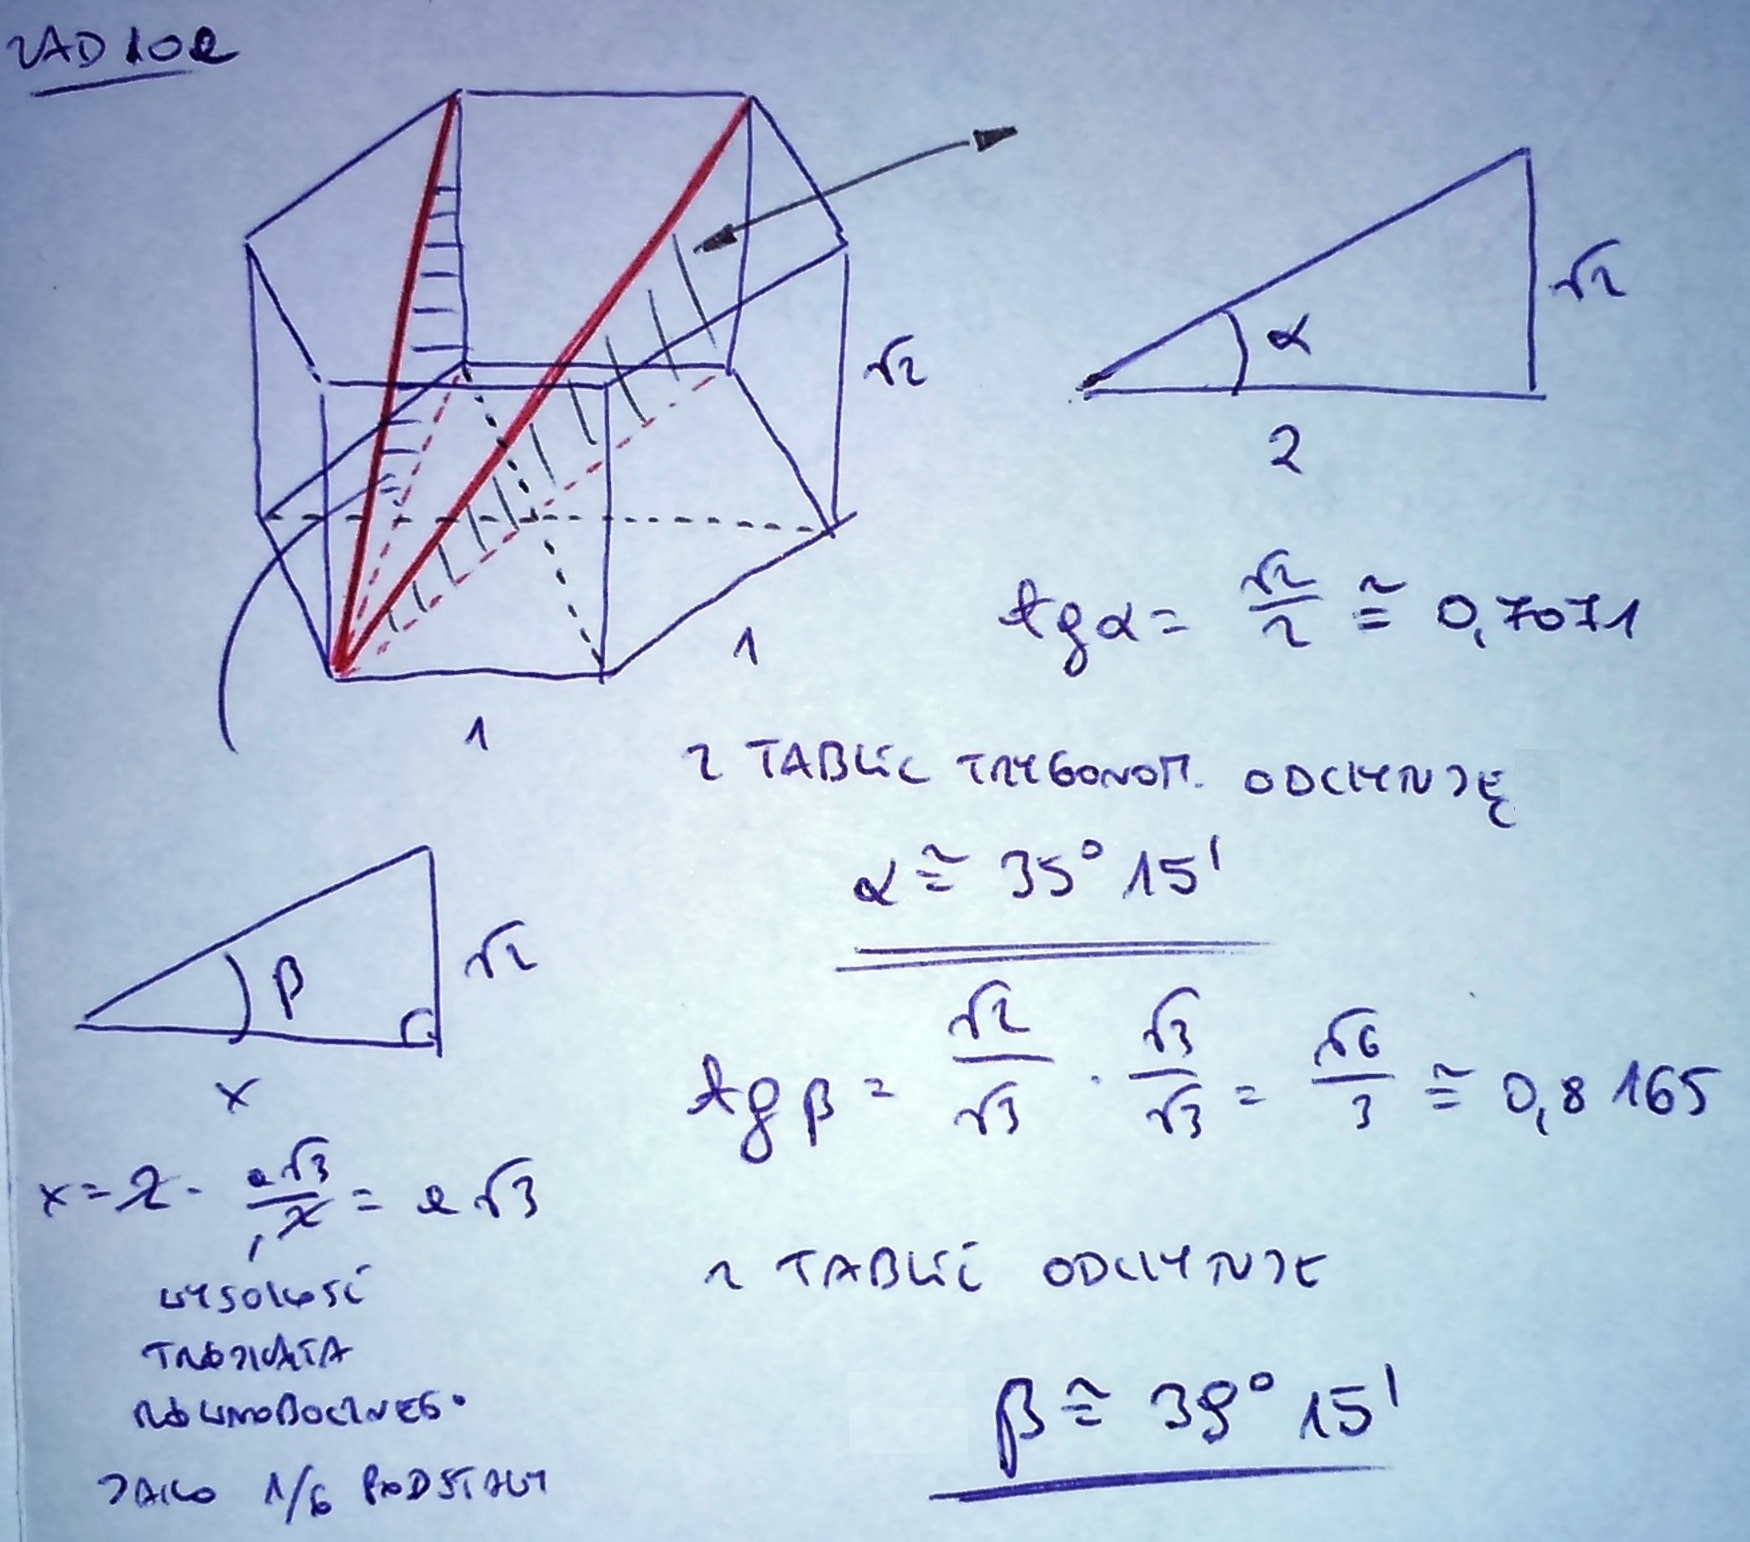 ZAD 102
√2
√2
α
2
1
1
tg α = √2/2 ≅ 0,7071
Z TABLIC TRYGONOM. ODCZYNJĘ
α ≅ 35° 15'
β
√2
x
tg β = √2/√3 · √3/√3 = √6/3 ≅ 0,8165
x = 2 · a√3/2 = a√3
1
WYSOKOŚĆ
TRÓJKĄTA
RÓWNOBOCZNEGO
JAKO 1/6 PODSTAWY
Z TABLIC ODCZYNJE
β ≅ 39° 15'